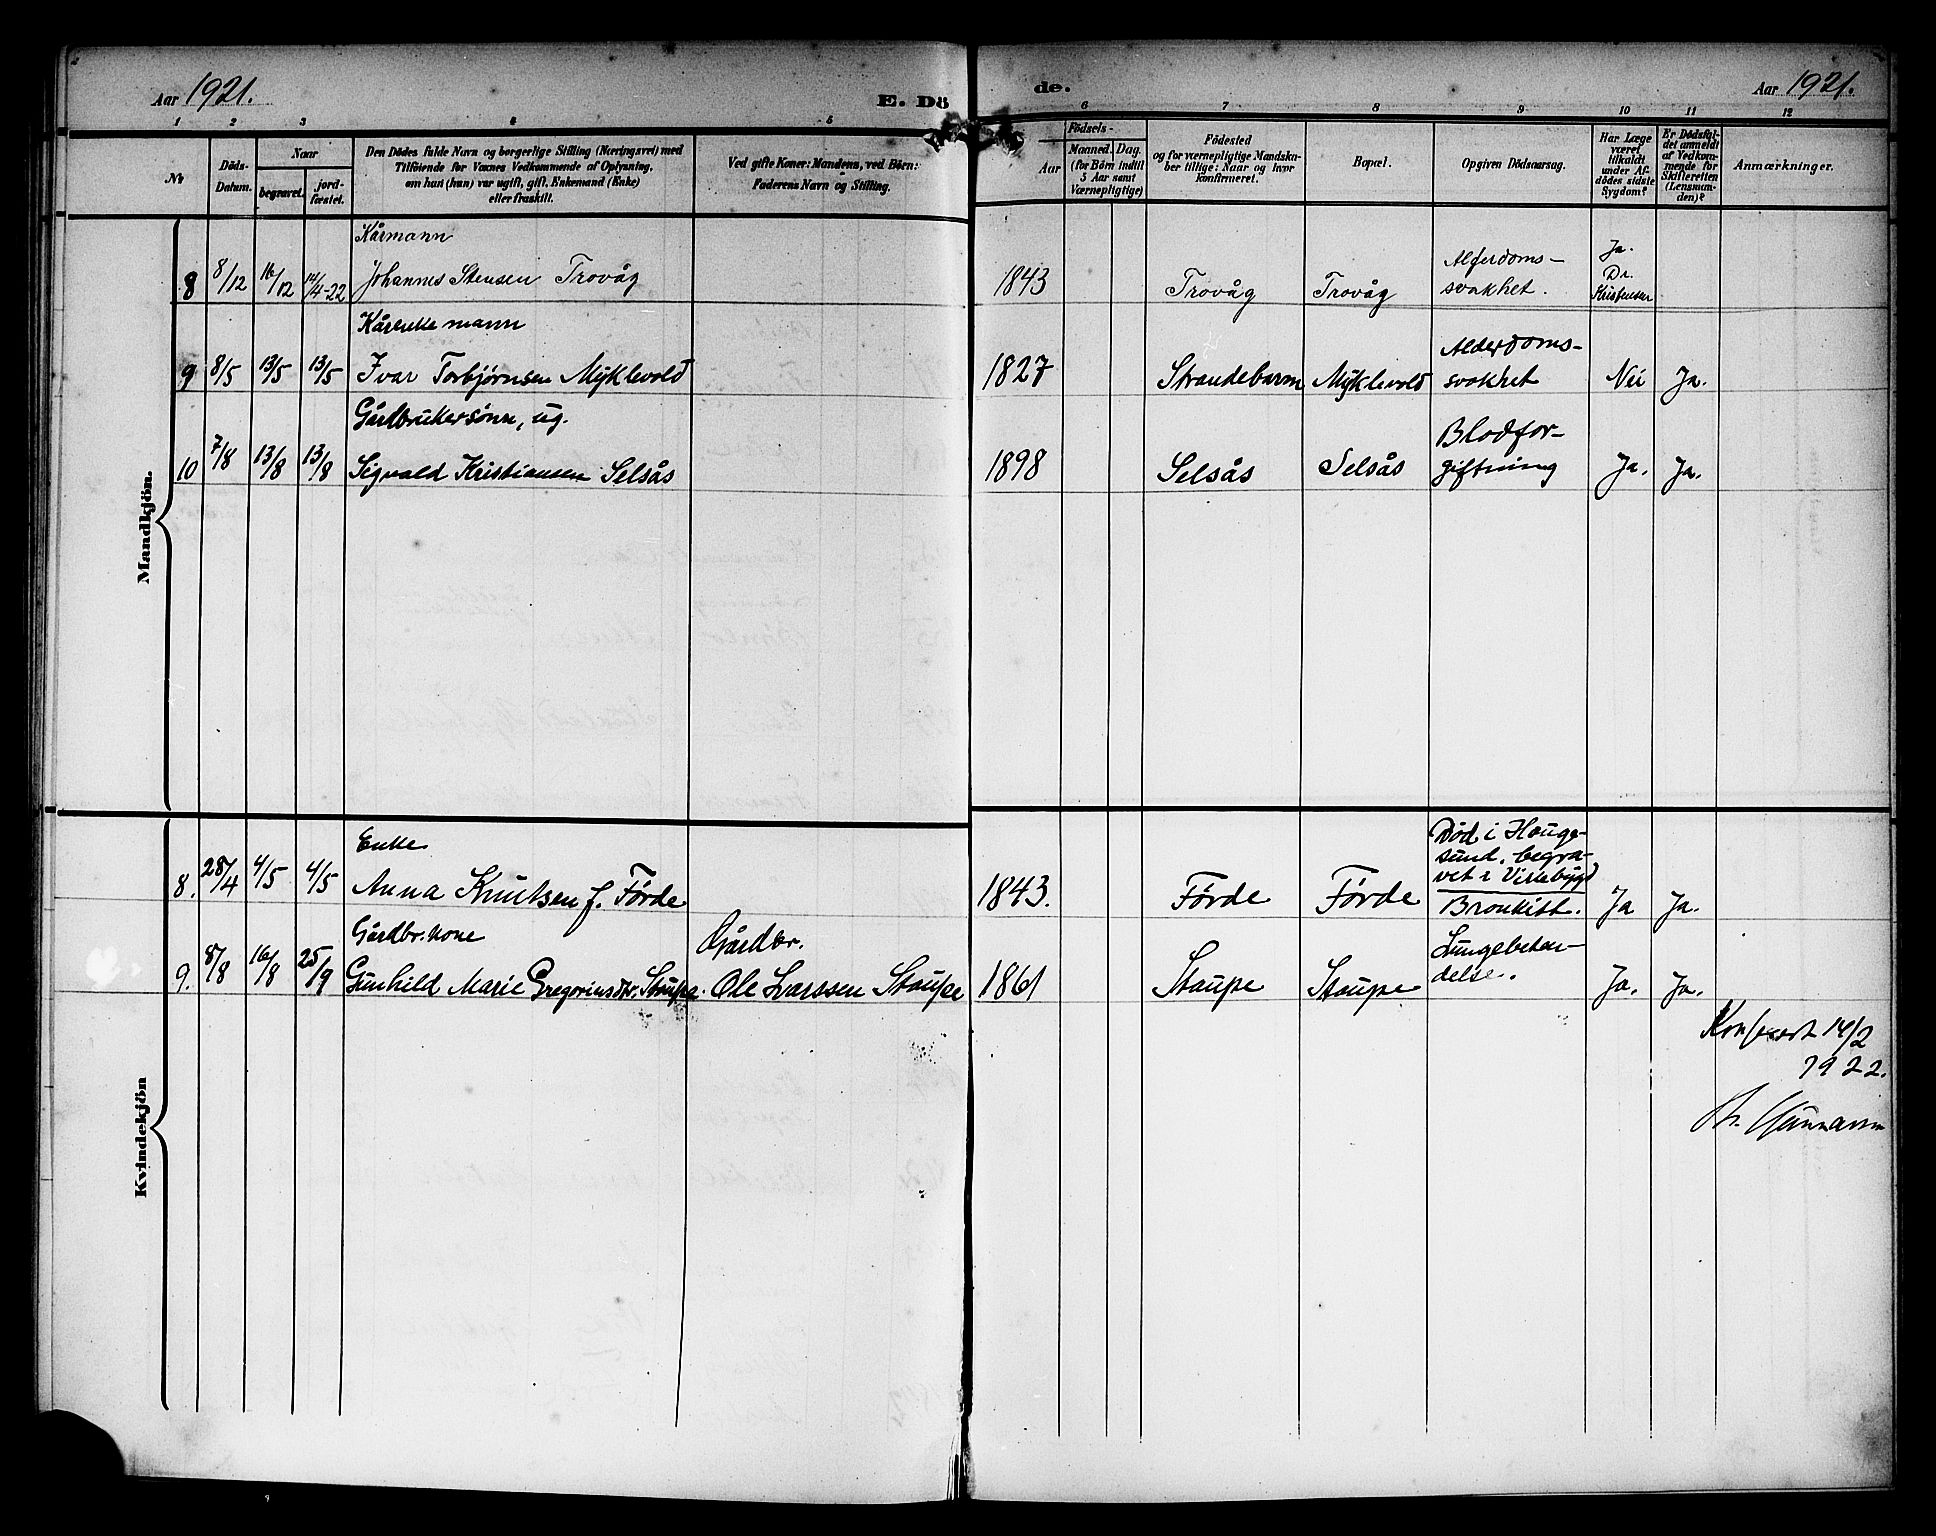 Aar 1921.
E. Dö
de.
Aar 1921.
1 2 3 4 5
6 7 8 9 10 11 12
№
Döds-
Datum.
Naar
begravet.
jord-
fæstet.
Den Dödes fulde Navn og borgerlige Stilling (Næringsvei) med
Tilföiende for Vaxnes Vedkommende af Oplysning,
om han (hun) var ugift, gift, Enkemand (Enke)
eller fraskilt.
Ved gifte Koner: Mandens, ved Börn:
Faderens Navn og Stilling.
Födsels-
Aar
Maaned. Dag.
(for Börn indtil
3 Aar samt
Værnepligtige)
Födested
og for værnepligtige Mandska-
ber tillige: Naar og hvor
konfirmeret.
Bopæl.
Opgiven Dödsaarsag.
Har Læge
været
tilkaldt
under Af-
dödes sidste
Sygdom?
Er Dödsfal-
det anmeldt
af Vedkom-
mende for
Skifteretten
(Lensman-
den)?
Anmærkninger.
Mandkjön.
Kårmann
8 8/12 16/12 14/4-22 Johannes Stensen Trovåg 1843 Trovåg Trovåg Alferdoms-
svakhet.
Ja.
Dr.
Kristensen
Kårenke mann
9 8/5 13/5 13/5 Ivar Torbjørnsen Myklevold 1827 Strandebarm Myklevold Alderdoms-
svakhet Nei Ja.
Gårdbrukersønn, ug.
10 7/8 13/8 13/8 Sigvald Kristiansen Selsås 1898 Selsås Selsås Blodfor-
giftning Ja. Ja.
Kvindekjön
Enke
8. 28/4 4/5 4/5 Anna Knutsen f. Førde 1843. Førde Førde Død i Hauge-
sund, begra-
vet i Vikebygd
Bronkitt. Ja Ja.
Gårdbr. kone
Gårdbr.
9. 8/8 16/8 25/9 Gunhild Marie Gregoriusdtr. Staupe. Ole Larssen Staupe 1861 Staupe Staupe Lungebeten-
delse. Ja. Ja.
Konferert 14/2
1922.